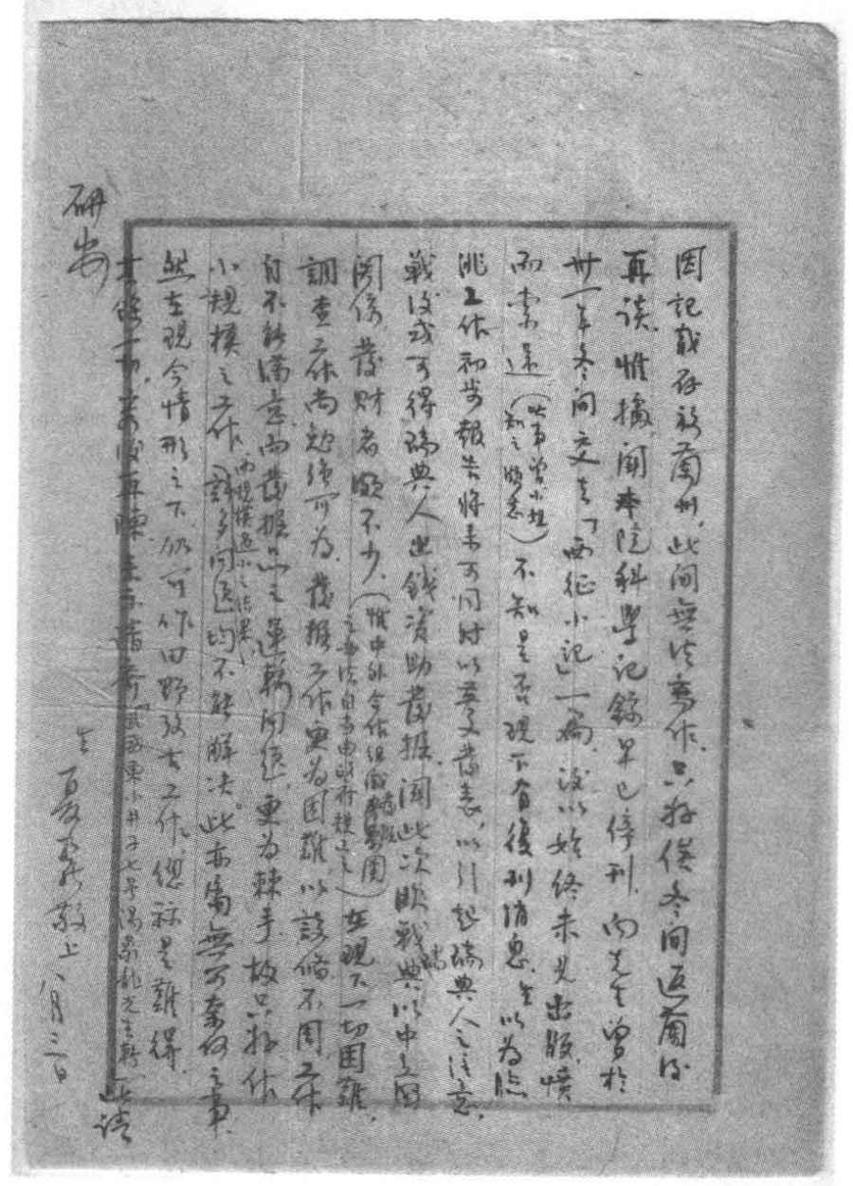 因記載存放蘭州，此間無法寫作，只好俟冬間返蘭後
再談。惟據聞本院科學記錄早已停刊，向先生曾於
卅一年冬間交去「西征小記」一稿，後以始終未見出版，憤
而索還（此事曾小姐知之頗悉）不知是否現下有復刊消息。生以為臨
洮工作初步報告將來可同時以英文發表，以引起瑞典人之注意，
戰後或可得瑞典人出錢資助發掘，聞此次歐戰瑞典以中立國
關係，發財者頗不少，（惟中外合作組織
之辦法自當由政府規定之）在現下一切困難，
調查工作尚勉強可為，發掘工作更為困難，以設備不周，工作
自不能滿意，而發掘品之運輸問題，更為棘手，故只好作
小規模之工作，而規模過小之結果，許多問題均不能解決。此亦屬無可奈何之事，
然在現今情形之下，仍可作田野考古工作，總算是難得。
其餘一切，容後再陳。來示請寄（武威東小井子七號 先生轉）此請
研安
生 夏鼐敬上 八月三日